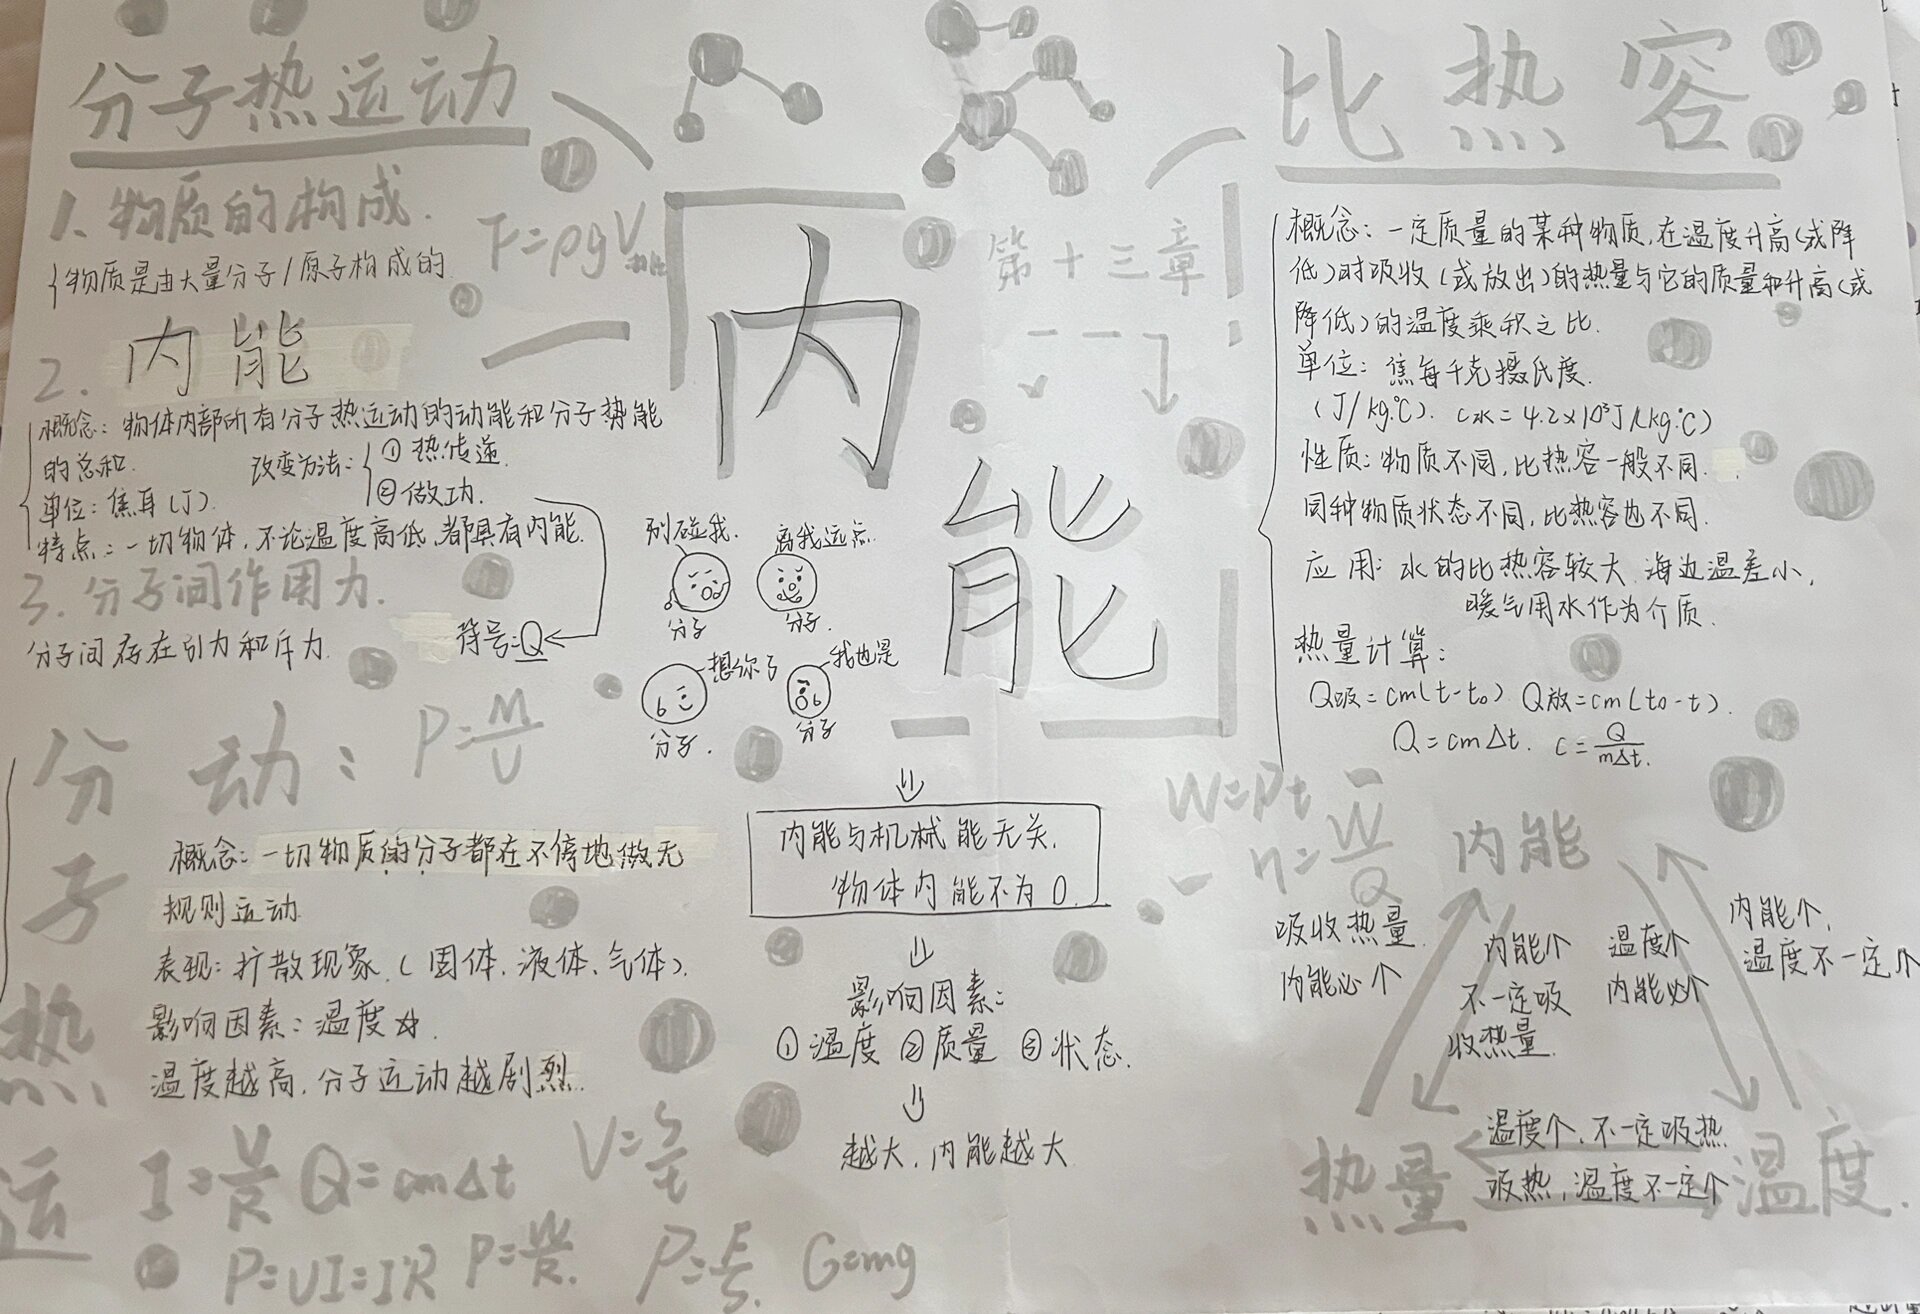 分子热运动
1. 物质的构成.
物质是由大量分子/原子构成的
F=ρgV排
2. 内能
概念：物体内部所有分子热运动的动能和分子势能
的总和.
改变方法：①热传递.
②做功.
单位：焦耳(J).
特点：一切物体，不论温度高低，都具有内能.
符号：Q
3. 分子间作用力.
分子间存在引力和斥力.
分子热运动：
ρ=M/V
概念：一切物质的分子都在不停地做无
规则运动
表现：扩散现象.(固体、液体、气体).
影响因素：温度☆.
温度越高，分子运动越剧烈.
I=U/R
Q=cm△t
V=S/t
P=UI=I²R
P=W/t.
P=F/S.
G=mg
内能
第十三章
别碰我.
分子
离我远点
分子.
想你了
分子.
我也是
分子
内能与机械能无关.
物体内能不为0.
影响因素：
①温度 ②质量 ③状态.
越大，内能越大
比热容
概念：一定质量的某种物质，在温度升高(或降
低)时吸收(或放出)的热量与它的质量和升高(或
降低)的温度乘积之比.
单位：焦每千克摄氏度.
(J/kg·℃). C水=4.2×10³J/(kg·℃)
性质：物质不同，比热容一般不同.
同种物质状态不同，比热容也不同.
应用：水的比热容较大，海边温差小，
暖气用水作为介质.
热量计算：
Q吸=cm(t-t₀) Q放=cm(t₀-t).
Q=cm△t. c=Q/m△t.
W=Pt
η=W/Q
内能
吸收热量
内能必↑
内能↑
不一定吸
收热量.
温度↑
内能必↑
内能↑，
温度不一定↑
温度↑，不一定吸热
吸热，温度不一定↑
热量
温度.